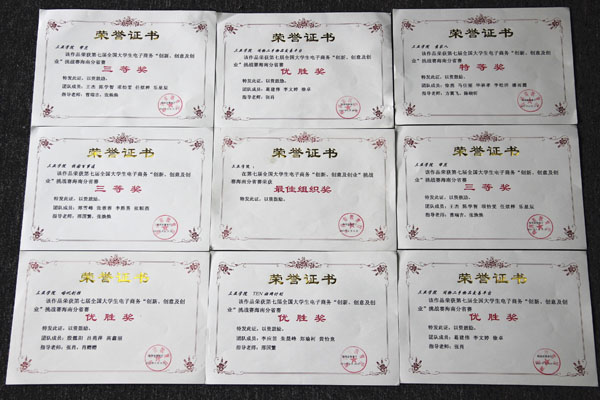 荣誉证书
三亚学院
该作品荣获第七届全国大学生电子商务“创新、创意及创
业”挑战赛海南分省赛
三等奖
特发此证，以资鼓励。
团队成员：王杰 陈学智 项怡雯 任煜梓 乐星辰
指导老师：曹瑞吉、张焕焕
荣誉证书
三亚学院
该作品荣获第七届全国大学生电子商务“创新、创意及创
业”挑战赛海南分省赛
优胜奖
特发此证，以资鼓励。
团队成员：葛建伟 李文婷 徐卓
指导老师：张肖
荣誉证书
三亚学院
该作品荣获第七届全国大学生电子商务“创新、创意及创
业”挑战赛海南分省赛
特等奖
特发此证，以资鼓励。
团队成员：
指导老师：
荣誉证书
三亚学院
该作品荣获第七届全国大学生电子商务“创新、创意及创
业”挑战赛海南分省赛
三等奖
特发此证，以资鼓励。
团队成员：
指导老师：张焕焕
荣誉证书
三亚学院：
在第七届全国大学生电子商务“创新、创意及创业”挑战
赛海南分省赛荣获
最佳组织奖
特发此证，以资鼓励。
荣誉证书
三亚学院
该作品荣获第七届全国大学生电子商务“创新、创意及创
业”挑战赛海南分省赛
三等奖
特发此证，以资鼓励。
团队成员：王杰 陈学智 项怡雯 任煜梓 乐星辰
指导老师：曹瑞吉、张焕焕
荣誉证书
三亚学院
该作品荣获第七届全国大学生电子商务“创新、创意及创
业”挑战赛海南分省赛
优胜奖
特发此证，以资鼓励。
团队成员：
指导老师：张肖、
荣誉证书
三亚学院 TEN
该作品荣获第七届全国大学生电子商务“创新、创意及创
业”挑战赛海南分省赛
优胜奖
特发此证，以资鼓励。
团队成员：
指导老师：
荣誉证书
三亚学院
该作品荣获第七届全国大学生电子商务“创新、创意及创
业”挑战赛海南分省赛
优胜奖
特发此证，以资鼓励。
团队成员：葛建伟 李文婷 徐卓
指导老师：张肖